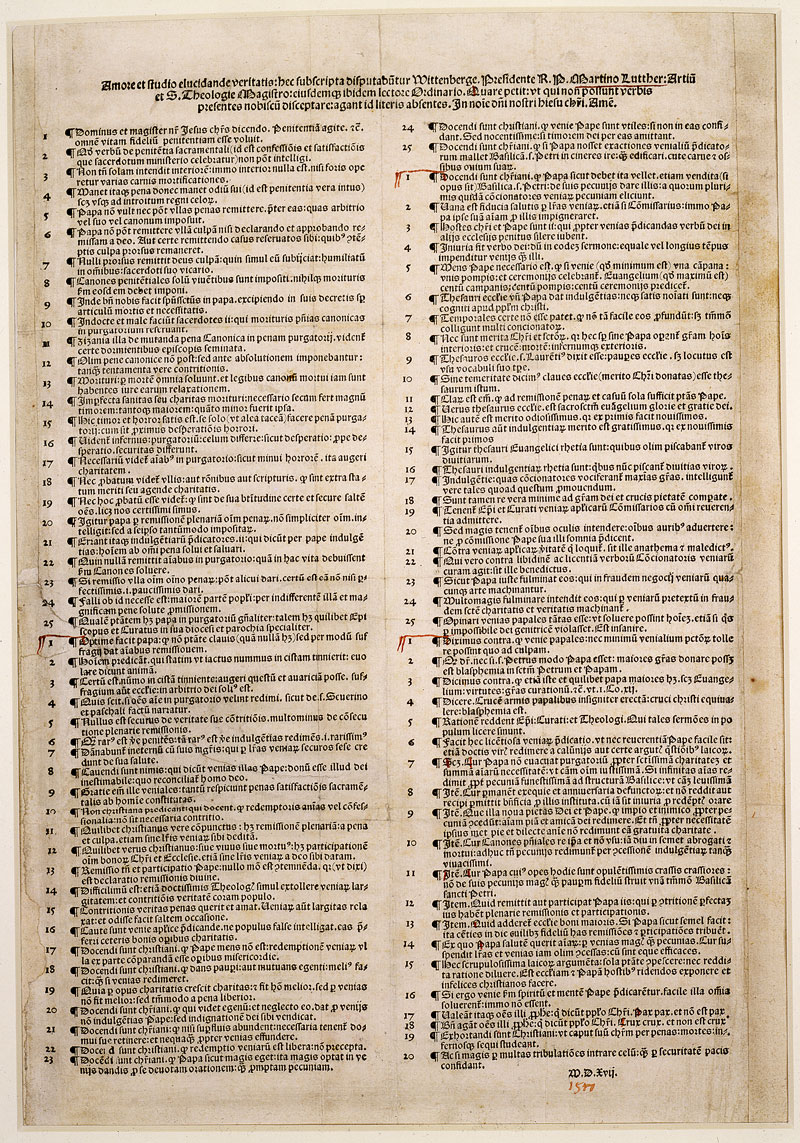 Amore et studio elucidande veritatis: hec subscripta disputabũtur Wittenberge. Presidente R. P. Martino Lutther: Artiũ
et S. Theologie Magistro: eiusdemq; ibidem lectore Ordinario. Quare petit: vt qui non possunt verbis
presentes nobiscũ disceptare: agant id literis absentes. In noĩe dñi nostri hiesu chři. Amẽ.
1 ¶ Dominus et magister nř Jesus chřs dicendo. Penitentiã agite. ꝛč.
omnẽ vitam fideliũ penitentiam esse voluit.
2 ¶ Qđ verbũ de penitẽtia sacramentali (id est confessiõis et satisfactiõis
que sacerdotum ministerio celebꝛatur) non põt intelligi.
3 ¶ Non tñ solam intendit interiorẽ: immo interioꝛ nulla est. nisi foꝛis ope
retur varias carnis moꝛtificationes.
4 ¶ Manet itaqꝫ pena donec manet odiũ sui (id est penitentia vera intus)
scꝫ vsqꝫ ad introitum regni celoꝛ.
5 ¶ Papa nõ vult nec põt vllas penas remittere. ꝑter eas: quas arbitrio
vel suo vel canonum imposuit.
6 ¶ Papa nõ põt remittere vllã culpã nisi declarando et approbando re-
missam a deo. Aut certe remittendo casus reseruatos sibi: quibꝰ ꝯtẽ-
ptis culpa proꝛsus remaneret.
7 ¶ Nulli proꝛsus remittit deus culpã: quin simul eũ subijciat: humiliatũ
in oĩbus: sacerdoti suo vicario.
8 ¶ Canones penitẽtiales solũ viuẽtibus sunt impositi. nihilqꝫ moꝛituris
ꝑm eosdem debet imponi.
9 ¶ Inde bñ nobis facit spũssctũs in papa. excipiendo in suis decretis sp
articulũ moꝛtis et necessitatis.
10 ¶ Indocte et male faciũt sacerdotes ii: qui moꝛituris pñias canonicas
in purgatorium reseruant.
11 ¶ Zizania illa de mutanda pena Canonica in penam purgatoꝛij. videnť
certe doꝛmientibus episcopis seminata.
12 ¶ Olim pene canonice nõ post: sed ante absolutionem imponebantur:
tanqꝫ tentamenta vere contritionis.
13 ¶ Moꝛituri: ꝑ moꝛtẽ omnia soluunt. et legibus canonũ moꝛtui iam sunt
habentes iure earum relaxationem.
14 ¶ Imꝑfecta sanitas seu charitas moꝛituri: necessario secũm fert magnũ
timoꝛem: tantoqꝫ maioꝛem: quãto minoꝛ fuerit ipsa.
15 ¶ Hic timoꝛ et hoꝛroꝛ: satis est. se solo (vt alea taceã) facere penã purga-
toꝛij: cum sit ꝓximus desperatiõis hoꝛroꝛi.
16 ¶ Videnť infernus: purgatoꝛiũ: celum differre: sicut desperatio: ꝓpe de-
speratio. securitas differunt.
17 ¶ Necessariũ videť aĩabꝰ in purgatoꝛio: sicut minui hoꝛroꝛẽ. ita augeri
charitatem.
18 ¶ Nec ꝓbatum videť vllis: aut rõnibus aut scripturis. qꝫ sint extra sta-
tum meriti seu agende charitatis.
19 ¶ Nec hoc ꝓbatũ esse videť: qꝫ sint de sua btitudine certe et secure saltẽ
oẽs. licꝫ nos certissimi simus.
20 ¶ Igitur papa ꝑ remissionẽ plenariã oĩm penaꝛ. nõ simpliciter oĩm. in-
telligit: sed a seipso tantũmodo impositaꝛ.
21 ¶ Errant itaqꝫ indulgẽtiarũ ꝓdicatoꝛes. ii: qui dicũt per pape indulgẽ
tias: hoĩem ab omi pena solui et saluari.
22 ¶ Quin nullã remittit aĩabus in purgatoꝛio: quã in hac vita debuissent
ꝑm Canones soluere.
23 ¶ Si remissio vlla oĩm oĩno penaꝛ: põt alicui dari. certũ est eã nõ nisi ꝑ-
fectissimis. i. paucissimis dari.
24 ¶ Falli ob id necesse est: maioꝛẽ partẽ popřl: per indifferẽtẽ illã et ma-
gnificam pene solute ꝓmissionem.
25 ¶ Qualẽ ptãtẽ hꝫ papa in purgatoꝛiũ gñaliter: talem hꝫ quilibet Epi
scopus et Curatus in sua diocesi et parochia specialiter.
1 ¶ Optime facit papa: qꝫ nõ ptãte clauis (quã nullã hꝫ) sed per modũ suf
fragij dat aĩabus remissionem.
2 ¶ Hoĩem ꝓdicãt. qui statim vt iactus nummus in cistam tinnierit: euo
lare dicunt animã.
3 ¶ Certũ est. nũmo in cistã tinniente: augeri questũ et auariciã posse. suf-
fragium aũt ecclřie: in arbitrio dei solꝰ est.
4 ¶ Quis scit. si oẽs aĩe in purgatoꝛio velint redimi. sicut de. s. Seuerino
et paschali factũ narratur.
5 ¶ Nullus est securus de veritate sue cõtritiõis. multominus de cõsecu
tione plenarie remissionis.
6 ¶ Qꝫ rarꝰ est ꝟe penitẽs: tã rarꝰ est ꝟe indulgẽtias redimẽs. i. rarissimꝰ
7 ¶ Dãnabunť ineternũ cũ suis mgřis: qui ꝑ lřas veniaꝛ securos sese cre
dunt de sua salute.
8 ¶ Cauendi sunt nimis: qui dicũt venias illas Pape: donũ esse illud dei
inestimabile: quo reconciliať homo deo.
9 ¶ Gratie em̃ ille veniales: tantũ respiciunt penas satisfactiõis sacramẽ-
talis ab homie constitutas.
10 ¶ Non christiana predicant: qui docent. qꝫ redemptoris aĩmaꝫ vel cõfes-
sionalia: nõ sit necessaria contritio.
11 ¶ Quilibet christianus vere cõpunctus: hꝫ remissionẽ plenariã: a pena
et culpa. etiam sine lřis veniaꝛ sibi debitã.
12 ¶ Quilibet verus christianus: siue viuus siue moꝛtuꝰ: hꝫ participationẽ
oĩm bonoꝛ Chři et Ecclesie. etiã sine lřis veniaꝛ a deo sibi datam.
13 ¶ Remissio tñ et participatio Pape: nullo mõ est ꝯtemnẽda. qꝛ (vt dixi)
est declaratio remissionis diuine.
14 ¶ Difficilimũ est: etiã doctissimis Theologꝫ simul extollere veniaꝛ lar-
gitatem: et contritiõis veritatẽ coꝛam populo.
15 ¶ Contritionis veritas penas querit et amat. Veniaꝛ aũt largitas rela
xat: et odisse facit saltem occasione.
16 ¶ Caute sunt venie aplice ꝓdicande. ne populus false intelligat. eas ꝑ-
ferri: ceteris bonis opibus charitatis.
17 ¶ Docendi sunt christiani. qꝫ Pape mens nõ est: redemptionẽ veniaꝛ vl
la ex parte cõparandã esse oꝑibus misericoꝛdie.
18 ¶ Docendi sunt christiani. qꝫ dans pauꝑi: aut mutuans egenti: meliꝰ fa-
cit: qꝫ si venias redimeret.
19 ¶ Quia ꝑ opus charitatis crescit charitas: ꝛ fit hõ melioꝛ. sed ꝑ venias
nõ fit melioꝛ: sed tm̃modo a pena liberioꝛ.
20 ¶ Docendi sunt christiani. qꝫ qui videt egenũ: et neglecto eo. dat ꝓ venijs
nõ indulgẽtias Pape: sed indignationẽ dei sibi vendicat.
21 ¶ Docendi sunt christiani: qꝫ nisi suꝑfluis abundent: necessaria tenenť do-
mui sue retinere: et nequaqꝫ ꝓpter venias effundere.
22 ¶ Docendi sunt christiani. qꝫ redemptio veniarũ est libera: nõ ꝓcepta.
23 ¶ Docendi sunt chřiani. qꝫ Papa sicut magis eget: ita magis optat in ve
nijs dandis ꝓ se deuotam oꝛationem: qꝫ ꝓmptam pecuniam.
24 ¶ Docendi sunt christiani. qꝫ venie Pape sunt vtiles: si non in eas confi-
dant. Sed nocentissime: si timoꝛem dei per eas amittant.
25 ¶ Docendi sunt chřiani. qꝫ si Papa nosset exactiones venialiũ ꝓdicato-
rum mallet Basilicã. s. Petri in cineres ire: qꝫ edificari. cute carne ꝛ os-
sibus ouium suaꝛ.
1 ¶ Docendi sunt chřiani. qꝫ Papa sicut debet ita vellet. etiam vendita (si
opus sit) Basilica. s. Petri: de suis pecunijs dare illis: a quoꝛum pluri-
mis quidã cõcionatoꝛes veniaꝛ pecuniam eliciunt.
2 ¶ Vana est fiducia salutis ꝑ lřas veniaꝛ. etiã si Cõmissarius: immo Pa-
pa ipse suã aĩam ꝓ illis impigneraret.
3 ¶ Hostes chři et Pape sunt ii: qui ꝓpter venias ꝓdicandas verbũ dei in
alijs ecclesijs penitus silere iubent.
4 ¶ Iniuria fit verbo dei: dũ in eodẽ sermone: equale vel longius tẽpus
impenditur venijs qꝫ illi.
5 ¶ Mens Pape necessario est. qꝫ si venie (qđ minimum est) vna cãpana:
vnis pompis: et ceremonijs celebranť. Euangelium (qđ maximũ est)
centũ campanis: centũ pompis: centũ ceremonijs predicet.
6 ¶ Thesauri ecclřie vñ Papa dat indulgẽtias: neqꝫ satis noĩati sunt: neqꝫ
cogniti apud ppłm chřisti.
7 ¶ Temporales certe nõ esse patet. qꝫ nõ tã facile eos ꝓfundũt: sꝫ tm̃mõ
colligunt multi concionatoꝛ.
8 ¶ Nec sunt merita Chři et sctõꝛ. qꝫ hec sꝑ sine Papa oꝑanť gřam hoĩs
interioꝛis: et crucẽ: moꝛtẽ: infernumqꝫ exterioris.
9 ¶ Thesauros ecclřie. s. Laurẽtiꝰ dixit esse: pauꝑes ecclřie. sꝫ locutus est
vsu vocabuli suo tꝑe.
10 ¶ Sine temeritate dicimꝰ claues ecclřie (merito Chři donatas) esse the-
saurum istum.
11 ¶ Claꝛ est em̃. qꝫ ad remissionẽ penaꝛ et casuũ sola sufficit ptãs Pape.
12 ¶ Verus thesaurus ecclřie. est sacrosctm̃ euãgelium: gloꝛie et gratie dei.
13 ¶ Hic autẽ est merito odiosissimus. qꝛ ex primis facit nouissimos.
14 ¶ Thesaurus aũt indulgentiaꝛ merito est gratissimus. qꝛ ex nouissimis
facit primos
15 ¶ Igitur thesauri Euangelici rhetia sunt: quibus olim piscabanť viros
diuitiarum.
16 ¶ Thesauri indulgentiaꝛ rhetia sunt: ꝗbus nũc piscanť diuitias viroꝛ.
17 ¶ Indulgẽtie: quas cõcionatoꝛes vociferanť maxĩas gřas. intelligunť
vere tales quoad questum ꝓmouendum.
18 ¶ Sunt tamen re vera minime ad gřam dei et crucis pietatẽ compate.
19 ¶ Tenenť Epĩ et Curati veniaꝛ aplicaꝛ Cõmissarios cũ omi reueren-
tia admittere.
20 ¶ Sed magis tenenť oĩbus oculis intendere: oĩbus auribꝰ aduertere:
ne ꝓ cõmissione Pape sua illi somnia ꝓdicent.
21 ¶ Cõtra veniaꝛ aplicaꝛ ꝟitatẽ ꝗ loquiť. sit ille anathema ꝛ maledictꝰ.
22 ¶ Qui vero contra libidinẽ ac licentiã verboꝛũ Cõcionatoꝛis veniarũ
curam agit: sit ille benedictus.
23 ¶ Sicut Papa iuste fulminat eos: qui in fraudem negocij veniarũ qua-
cunqꝫ arte machinantur.
24 ¶ Multomagis fulminare intendit eos: qui ꝑ veniarũ pretextũ in frau
dem sctẽ charitatis et veritatis machinanť.
25 ¶ Opinari venias papales tãtas esse: vt soluere possint hoĩeꝫ. etiã si ꝗs
ꝑ impossibile dei genitricẽ violasset. Est insanire.
1 ¶ Diximus contra. qꝫ venie papales: nec minimũ venialium pctõꝛ tolle
re possint quo ad culpam.
2 ¶ Qđ dř. nec si. s. Petrus modo Papa esset: maioꝛes gřas donare possꝫ
est blasphemia in sctm̃ Petrum et Papam.
3 ¶ Dicimus contra. qꝫ etiã iste et quilibet papa maioꝛes hꝫ. scꝫ Euange-
lium: virtutes: gřas curationũ. ꝛč. vt. i. Co. xij.
4 ¶ Dicere. Crucẽ armis papalibus insigniter erectã: cruci chřsti equiua-
lere: blasphemia est.
5 ¶ Rationẽ reddent Epĩ: Curati: et Theologi. Qui tales sermões in po
pulum licere sinunt.
6 ¶ Facit hec licẽtiosa veniaꝛ ꝓdicatio. vt nec reuerentiã Pape facile sit:
etiã doctis virꝫ redimere a calũnijs aut certe argutꝫ ꝗstiõibꝫ laicoꝛ.
7 ¶ Scꝫ. Cur Papa nõ euacuat purgatoꝛiũ ꝓpter sctissimã charitateꝫ et
summã aĩarũ necessitatẽ: vt cãm oĩm iustissimã. Si infinitas aĩas re-
dimit ꝓpť pecuniã funestissimã ad structurã Basilice: vt cãꝫ leuissimã
8 ¶ Itẽ. Cur ꝑmanẽt exequie et anniuersaria defunctoꝛ: et nõ reddit aut
recipi ꝑmittit bñficia ꝓ illis instituta. cũ iã sit iniuria ꝓ redẽptꝫ orare
9 ¶ Itẽ. Que illa noua pietas Dei et Pape. qꝫ impio et inimico ꝓpter pe-
cuniã ꝯcedũt: aĩam piã et amicã dei redimere. Et tñ ꝓpter necessitatẽ
ipsius met pie et dilecte aĩe nõ redimunt eã gratuita charitate.
10 ¶ Itẽ. Cur Canones pñiales re ipã et nõ vsu: iã diu in semet abrogati ꝛ
moꝛtui: adhuc tñ pecunijs redimunť ꝑ ꝯcessionẽ indulgẽtiaꝛ tanqꝫ
viuacissimi.
11 ¶ Itẽ. Cur Papa cuiꝰ opes hodie sunt opulẽtissimis crassis crassioꝛes:
nõ de suis pecunijs magꝫ qꝫ pauꝑm fideliũ struit vnã tm̃mõ Basilicã
sancti Petri.
12 ¶ Item. Quid remittit aut participat Papa iis: qui ꝑ ꝯtritionẽ ꝑfectaꝫ
ius habẽt plenarie remissionis et participationis.
13 ¶ Item. Quid adderet ecclřie boni maioꝛis. Si Papa sicut semel facit:
ita cẽties in die cuilibꝫ fideliũ has remissiões ꝛ ꝑticipatiões tribueř.
14 ¶ Ex quo Papa salutẽ querit aĩaꝛ: ꝑ venias magꝫ qꝫ pecunias. Cur su-
spendit lřas et venias iam olim ꝯcessas: cũ sint eque efficaces.
15 ¶ Hec scrupulosissima laicoꝛ argumẽta: sola ptãte ꝯpescere: nec reddi-
ta ratione diluere. Est ecclřiam ꝛ Papã hostibꝰ ridendos exponere et
infelices christianos facere.
16 ¶ Si ergo venie ꝑm spiritũ et mentẽ Pape ꝓdicarẽtur. facile illa omia
soluerenť: immo nõ essent.
17 ¶ Valeãt itaqꝫ oẽs illi ꝓphe: ꝗ dicũt ppło Chři. Pax pax. et nõ est pax
18 ¶ Bñ agãt oẽs illi ꝓphe: ꝗ dicũt ppło Chři. Crux crux. et non est crux
19 ¶ Exhoꝛtandi sunt Christiani: vt caput suũ chřm per penas: moꝛtes: in-
fernosqꝫ sequi studeant.
20 ¶ Ac si magis ꝑ multas tribulatiões intrare celũ: qꝫ ꝑ securitatẽ pacis
confidant.
M. D. Xvij.
1517